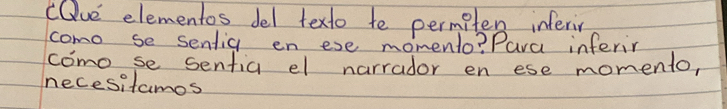 ¿Qué elementos del texto te permiten inferir
como se sentia en ese momento? Para inferir
cómo se sentia el narrador en ese momento,
necesitamos